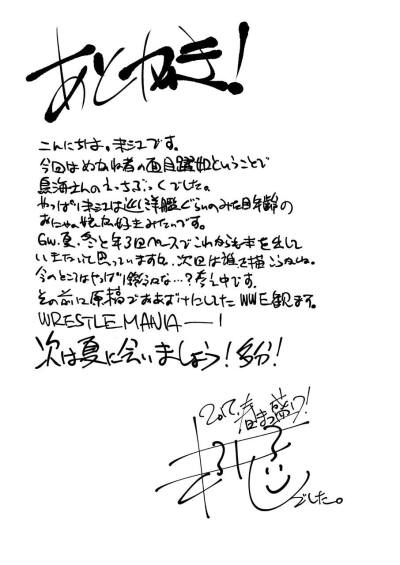 あとがき!
こんにちは。です。
今回はぬかね者の面目躍如ということで
鳥海さんのえっちぶっくでした。
やっぱりは巡洋艦ぐらいのみた目年齢の
おにゃの娘が好きみたいです。
GW、夏、冬と年3回ペースでこれからも本を出して
いきたいって思っていますが、次回は誰を描こうかしら。
今のところはやっぱり鈴谷かな…?考え中です。
その前に原稿でおあずけにしたWWE観ます。
WRESTLE MANIA──!
次は夏に会いましょう!多分!
2017.春まっ盛り!
でした。